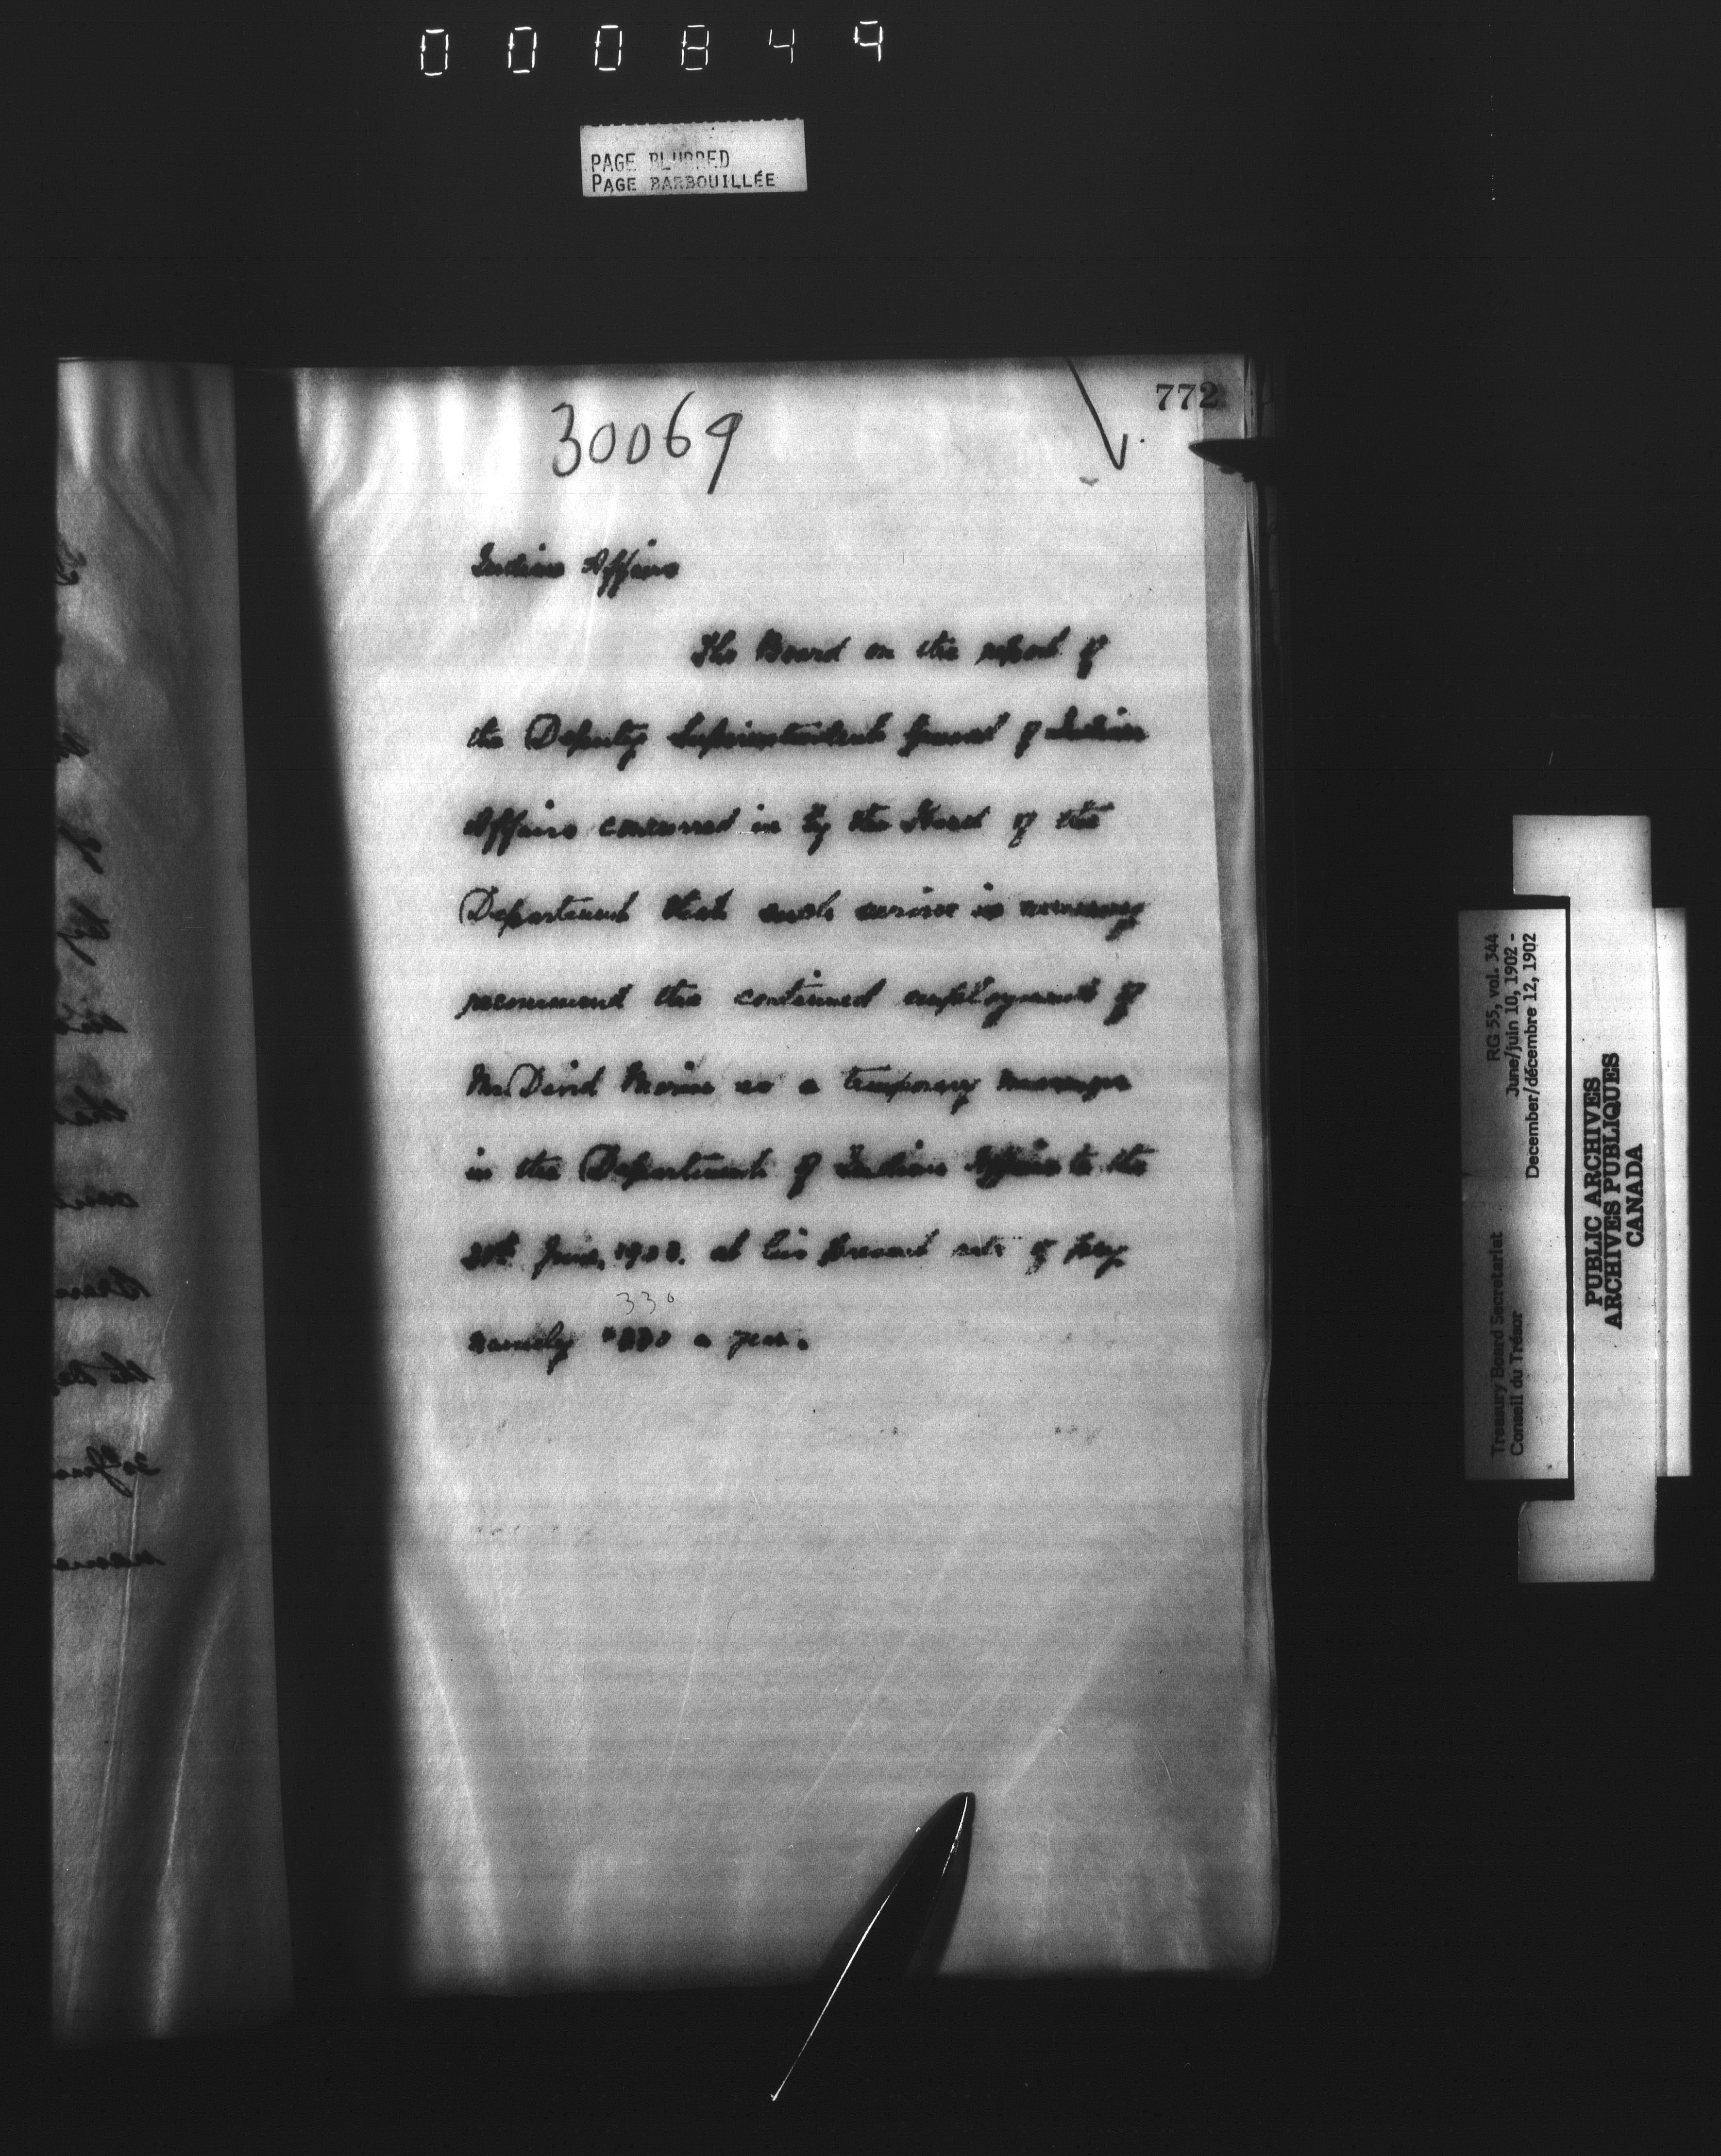 000849
PAGE BLURRED
PAGE BARBOUILLÉE
772
30069
Indian Affairs
The Board on the report of
the Deputy Superintendent General of Indian
Affairs concurred in by the Head of the
Department that such service is necessary
recommend the continued employment of
Mr David Morin as a temporary messenger
in the Department of Indian Affairs to the
30th June, 1903. at his present rate of pay
330
namely $330 a year.
RG 55, vol. 344
June/juin 10, 1902 -
December/décembre 12, 1902
Treasury Board Secretariat
Conseil du Trésor
PUBLIC ARCHIVES
ARCHIVES PUBLIQUES
CANADA